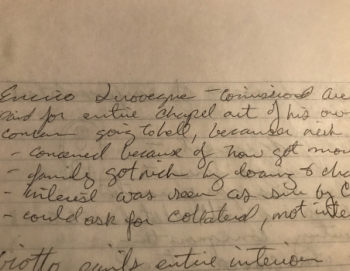 Enrico Scrovegne - comissioned are
paid for entire chapel out of his own
concern going to hell, because rich
- concerned because of how got mon
- family got rich by loaning & cha
- interest was seen as sin by C
- could ask for collateral, not inte
Giotto paints entire interior